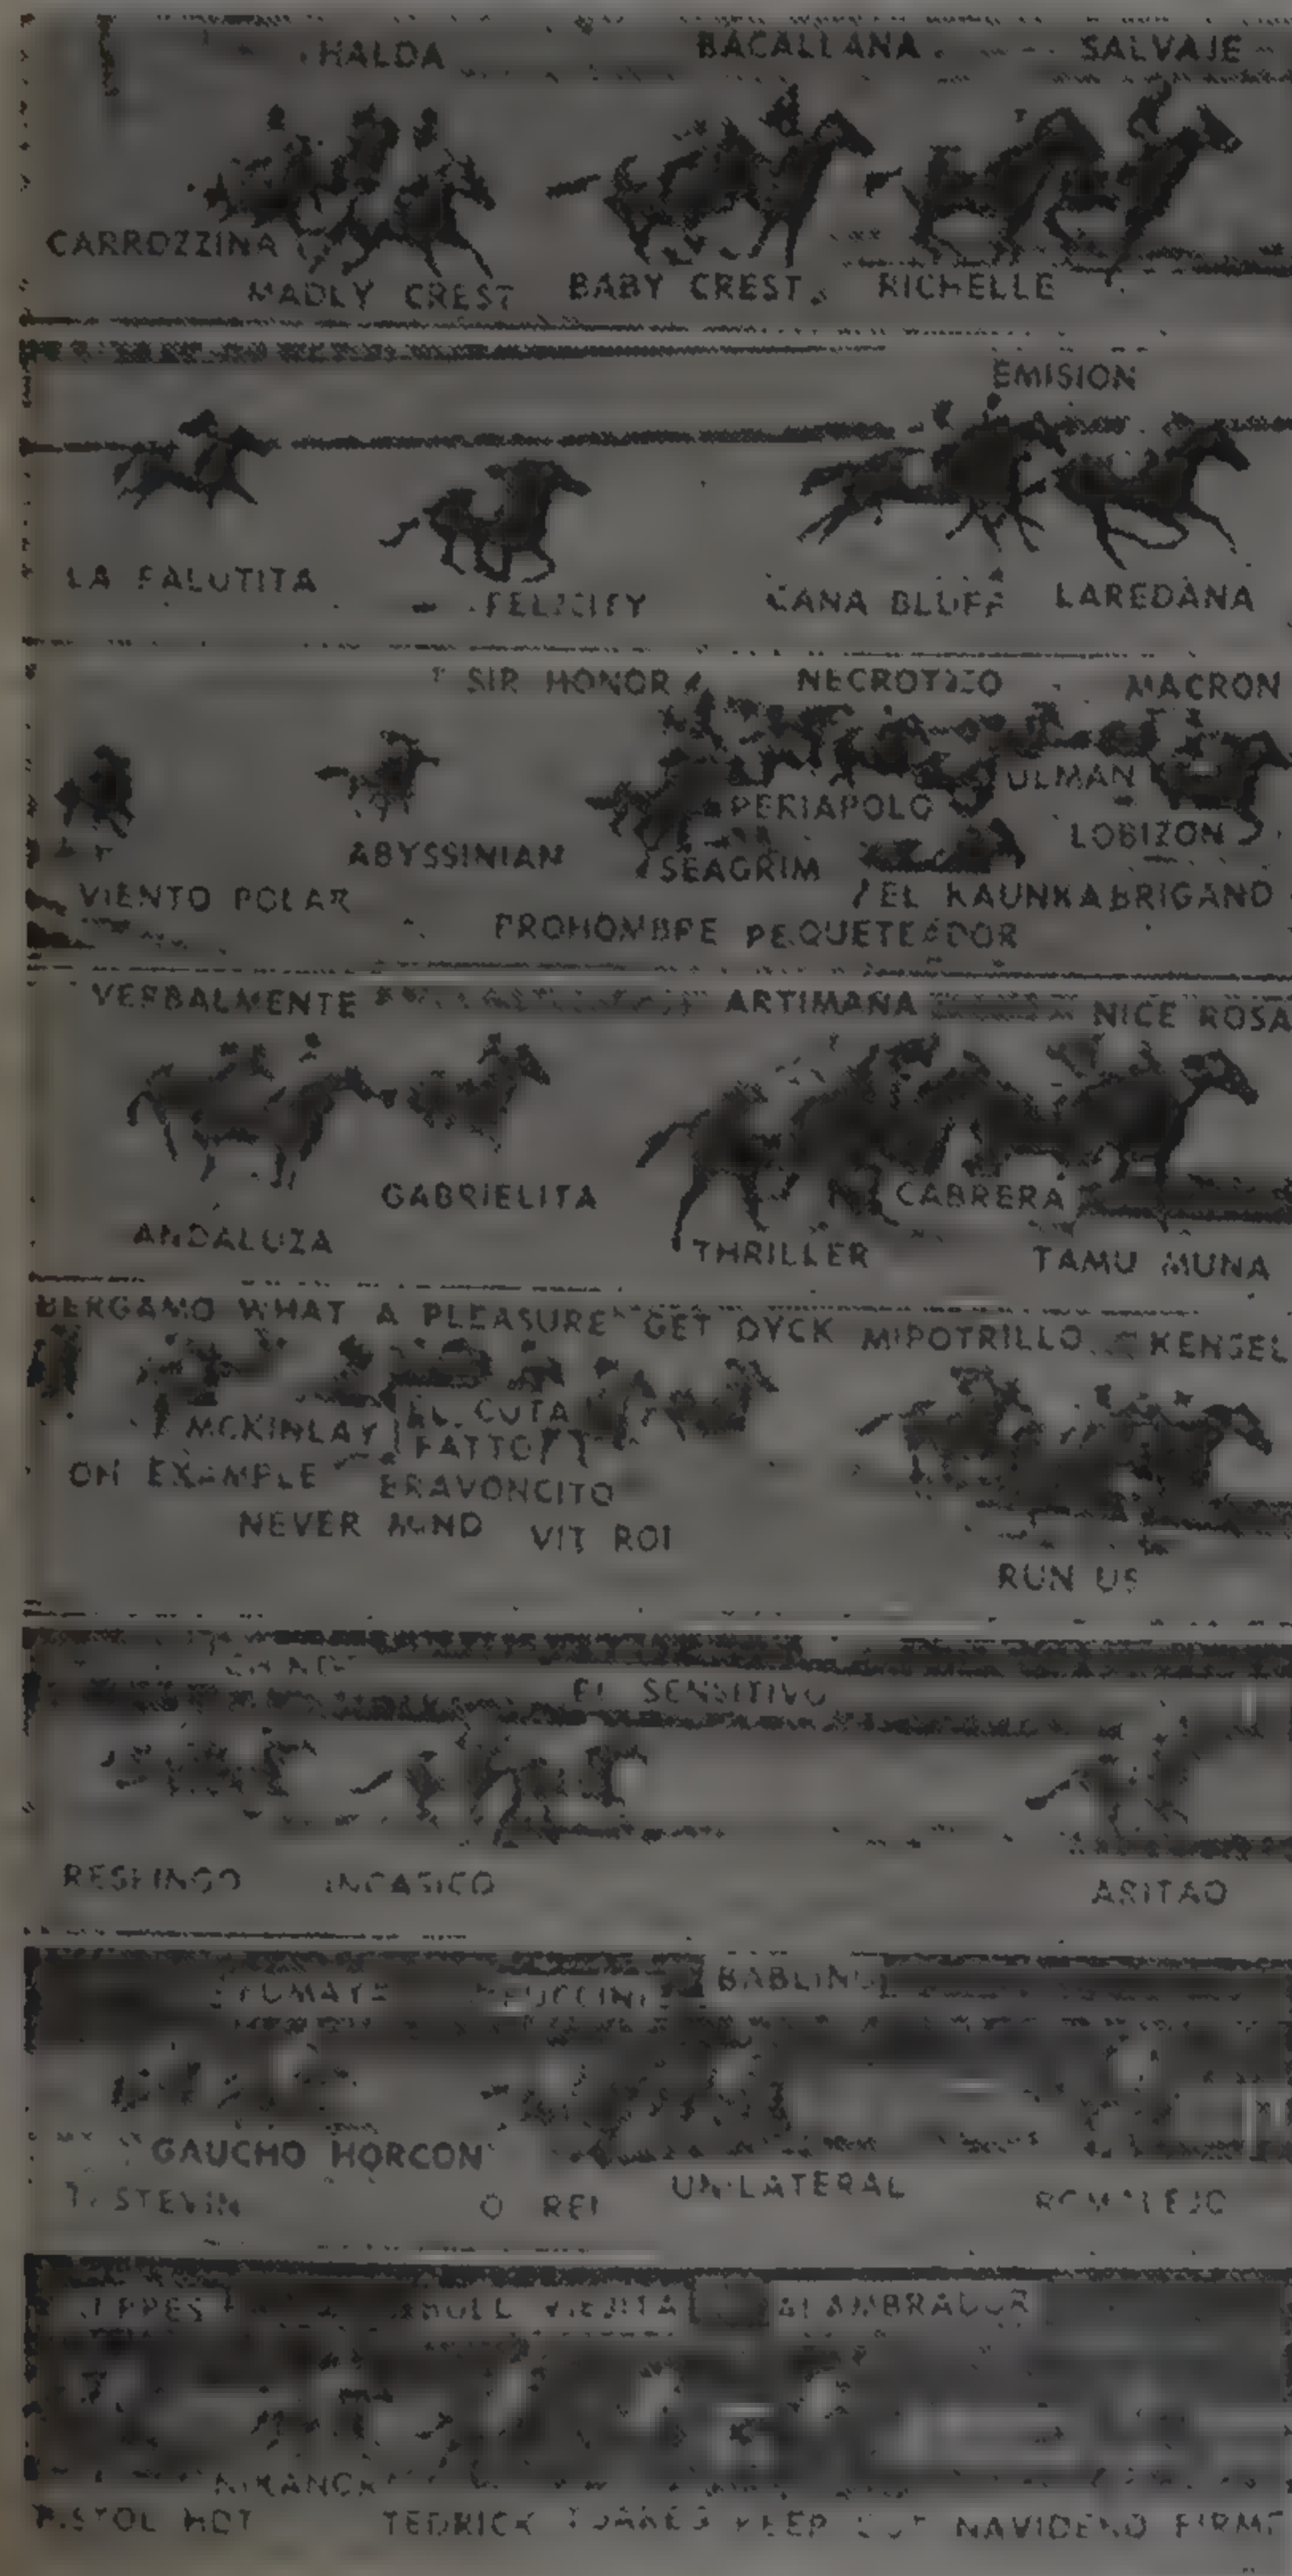 HALDA BACALLANA SALVAJE
CARROZZINA
MADLY CREST BABY CREST RICHELLE
EMISION
LA FALUTITA FELICITY CANA BLUFF LAREDANA
SIR HONOR NECROTICO MACRON
ULMAN
PERIAPOLO
LOBIZON
ABYSSINIAN SEAGRIM
VIENTO POLAR EL KAUNKA BRIGANO
PROHOMBRE PEQUETEADOR
VERBALMENTE ARTIMANA NICE ROSA
GABRIELITA CABRERA
ANDALUZA THRILLER TAMU MUNA
BERGAMO WHAT A PLEASURE GET DYCK MIPOTRILLO KENSEL
MCKINLAY EL CUTA
FATTO
OH EXAMPLE BRAVONCITO
NEVER MIND VIT ROI
RUN US
EL SENSITIVO
RESPINGO INCASICO ARITAO
GAUCHO HORCON
O REI UNILATERAL
ALAMBRADOR
PISTOL HOT TEDRICK KEEP NAVIDENO FIRME